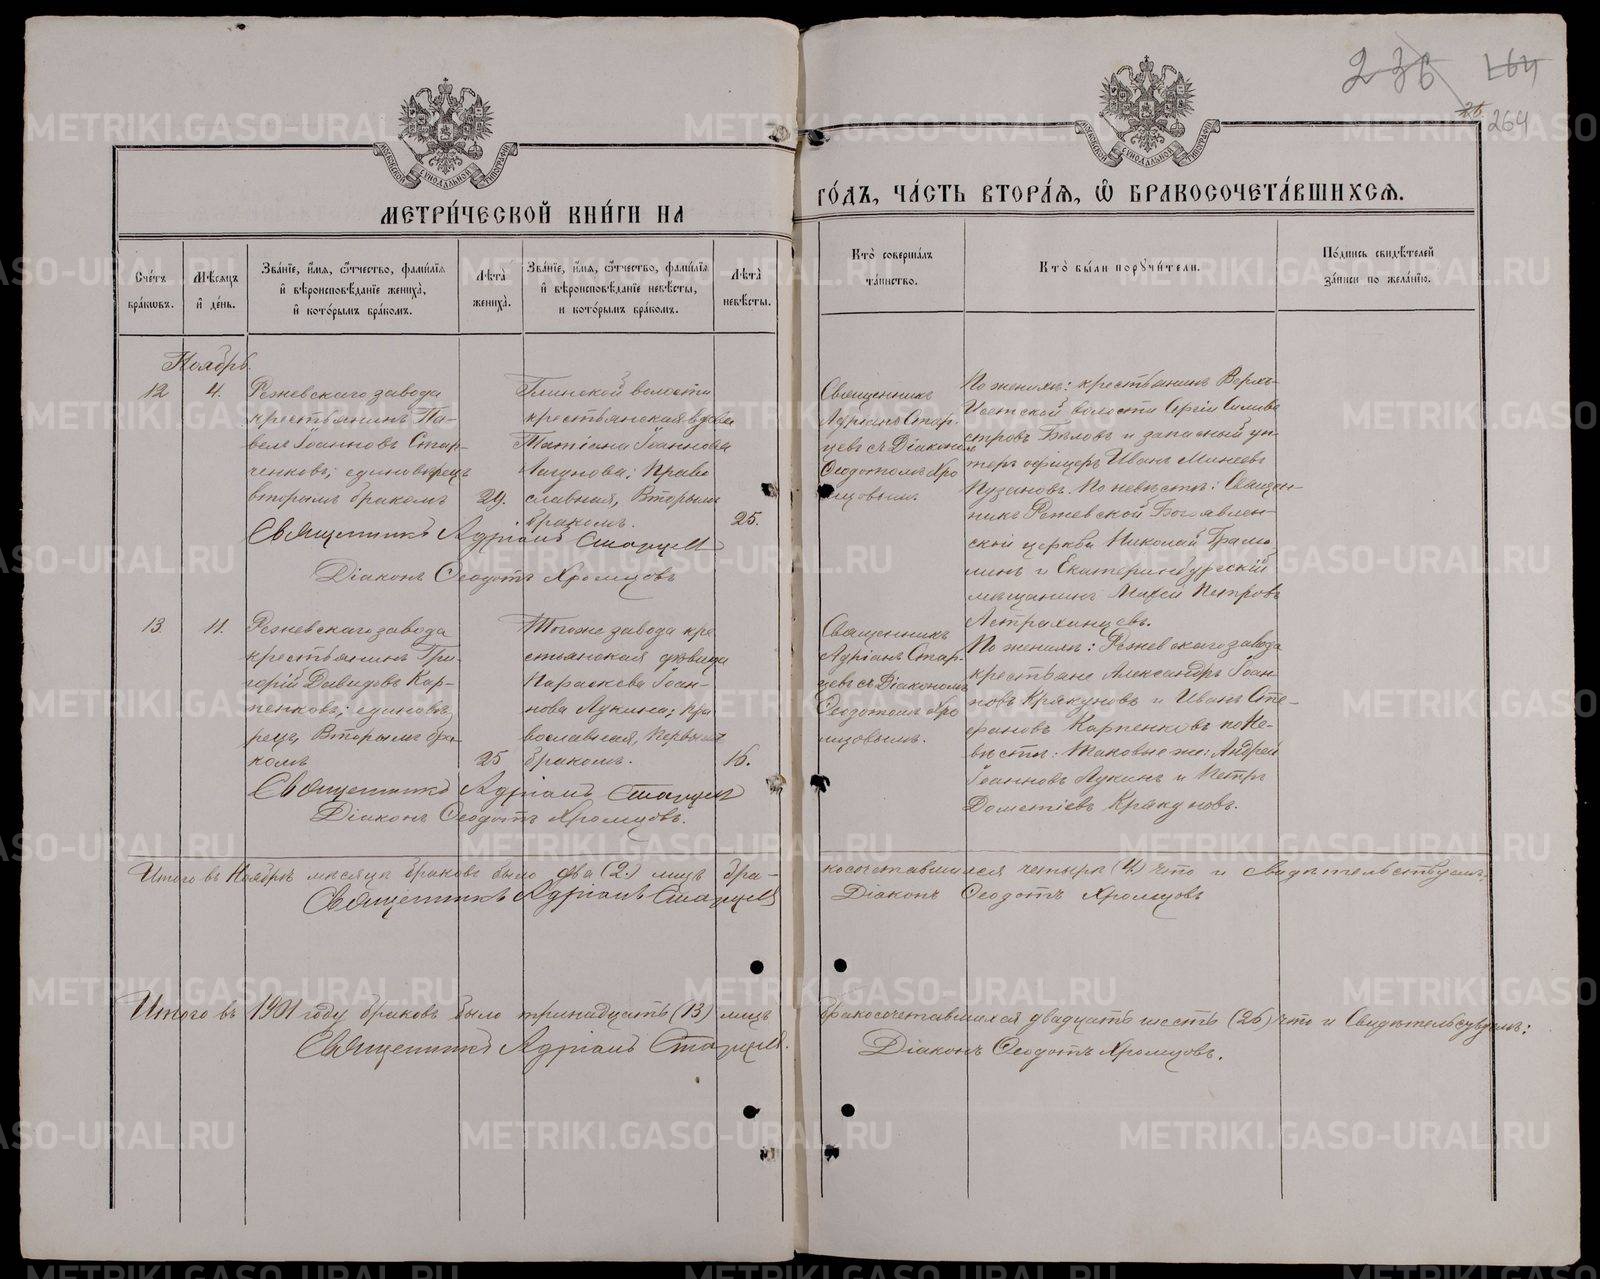 236 164
26 264
МОСКОВСКОЙ СѴНОДАЛЬНОЙ ТИПОГРАФІИ
МОСКОВСКОЙ СѴНОДАЛЬНОЙ ТИПОГРАФІИ
МЕТРИ́ЧЕСКОЙ КНИ́ГИ НА
ГО́ДЪ, ЧА́СТЬ ВТОРА́Я, Ѡ БРАКОСОЧЕТА́ВШИХСѦ.
Сче́тъ бра́кѡвъ.
Мѣ́сѧцъ и҆ де́нь.
Зва́нїе, и҆́мѧ, ѻ҆́тчество, фами́лїѧ и҆ вѣроисповѣ́данїе жениха̀, и҆ кото́рымъ бра́комъ.
Лѣта̀ жениха̀.
Зва́нїе, и҆́мѧ, ѻ҆́тчество, фами́лїѧ и҆ вѣроисповѣ́данїе невѣ́сты, и кото́рымъ бра́комъ.
Лѣта̀ невѣ́сты.
Кто̀ соверша́лъ та́инство.
Кто̀ бы́ли порꙋчи́тели.
По́дпись свидѣ́телей за́писи по жела́нїю.
Ноябрь.
12
4.
Режевскаго завода
крестьянинъ Па-
велъ Іоанновъ Стар-
ченковъ; единовѣрецъ
вторымъ бракомъ
29.
Глинской волости
крестьянская вдова
Татіана Іоаннова
Лагунова; Право
славная, Вторымъ
бракомъ.
25.
Священникъ
Адріанъ Стар-
цевъ съ Діакономъ
Ѳеодотомъ Хро
мцовымъ
По женихѣ: крестьянинъ Верхъ-
Исетской волости Сергій Силиве
стровъ Бѣловъ и запасный ун-
теръ офицеръ Иванъ Минеевъ
Пузановъ. По невѣстѣ: Священ-
никъ Режевской Богоявлен-
ской церкви Николай
и Екатеринбургскій
мѣщанинъ Петровъ
Астраханцевъ.
Священникъ Адріанъ Старцевъ
Діаконъ Ѳеодотъ Хромцовъ
13.
11.
Режевскаго завода
крестьянинъ Гри-
горій Давидовъ Кар-
пенковъ; единовѣ
рецъ, Вторымъ бра-
комъ
25
Тогоже завода кре
стьянская дѣвица
Параскева Іоан-
нова Лукина; пра
вославная, Первымъ
бракомъ.
16.
Священникъ
Адріанъ Стар-
цевъ съ Діакономъ
Ѳеодотомъ Хро
мцовымъ.
По женихѣ: Режевскаго завода
крестьяне Александръ Іоан
новъ Крякуновъ и Иванъ Сте-
фановъ Карпенковъ по Не-
вѣстѣ: Таковые же: Андрей
Іоанновъ Лукинъ и Петръ
Дометіевъ Крякуновъ.
Священникъ Адріанъ Старцевъ
Діаконъ Ѳеодотъ Хромцовъ.
Итого въ Ноябрѣ мѣсяцѣ браковъ было два (2.) лицъ бра-
косочетавшихся четыре (4) что и свидѣтельствуемъ
Священникъ Адріанъ Старцевъ
Діаконъ Ѳеодотъ Хромцовъ
Итого въ 1901 году браковъ было тринадцать (13) лицъ
бракосочетавшихся двадцать шесть (26) что и Свидѣтельствуемъ:
Священникъ Адріанъ Старцевъ.
Діаконъ Ѳеодотъ Хромцовъ.
METRIKI.GASO-URAL.RU